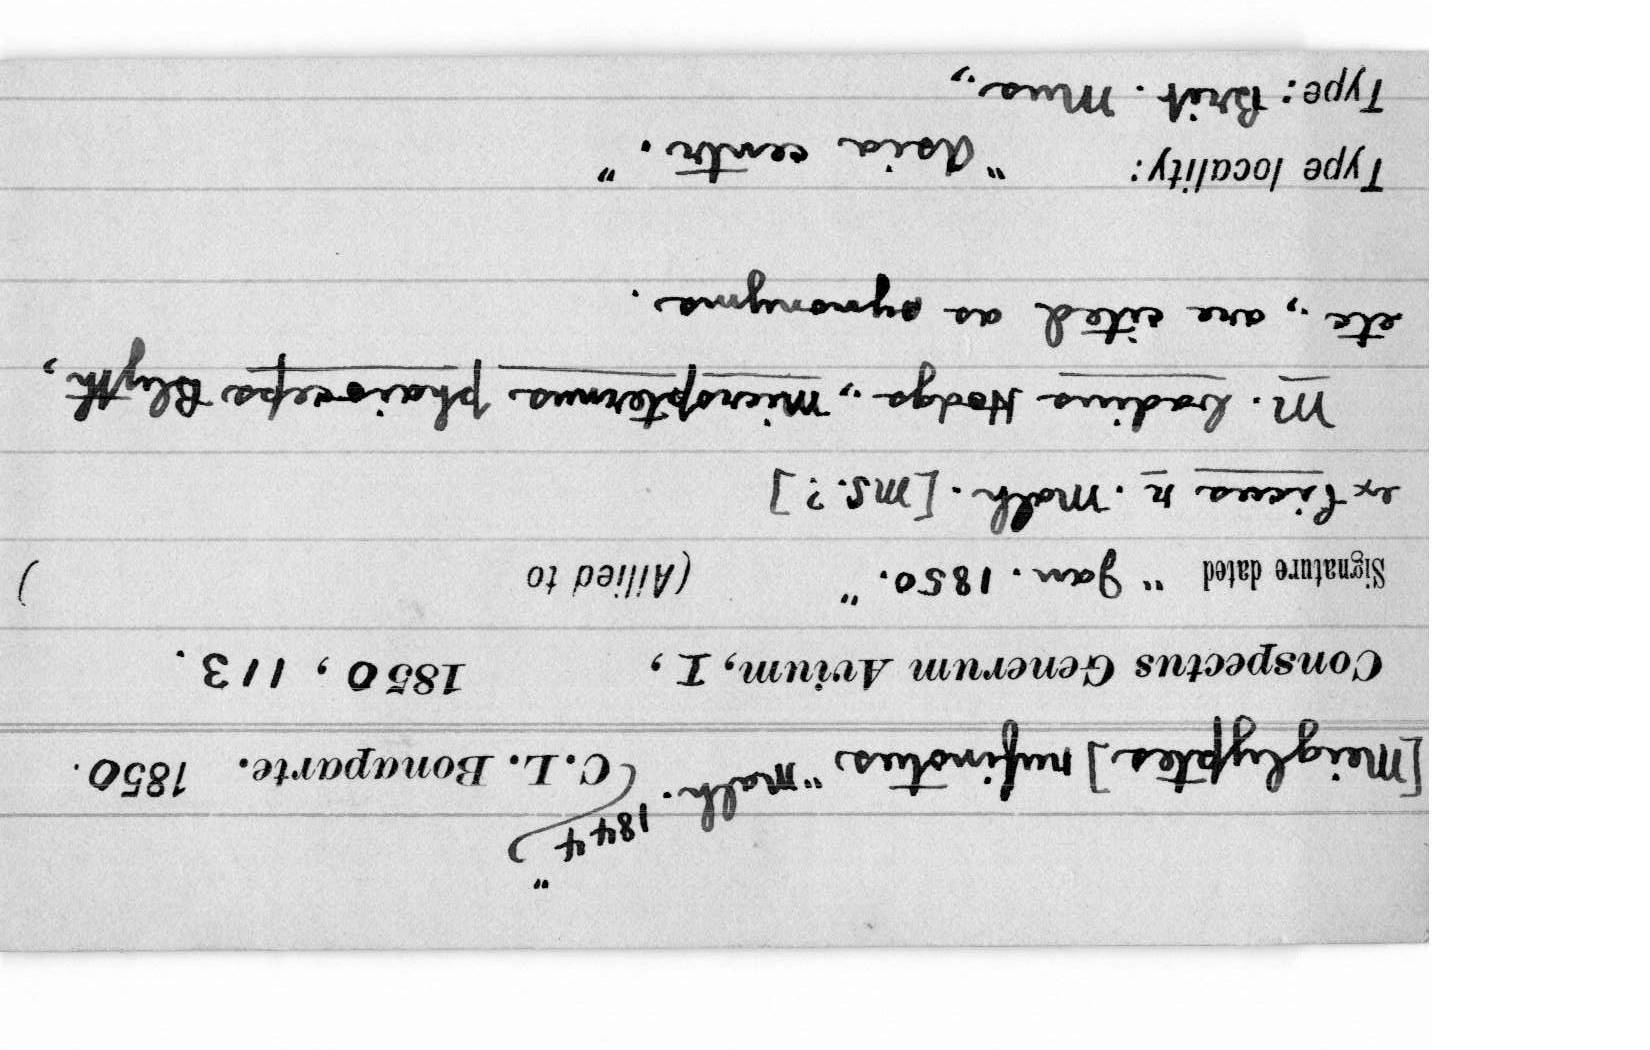 [Meiglyptes] rufinotus "Malh. 1844" (C. L. Bonaparte. 1850.
Conspectus Generum Avium, I, 1850, 113.
Signature dated "Jan. 1850." (Allied to )
ex Picus r. Malh. [MS.?]
M. badius Hodgs., Micropternus phaioceps Blyth,
etc., are cited as synonyms.
Type locality: "Asia centr."
Type: Brit. Mus.,